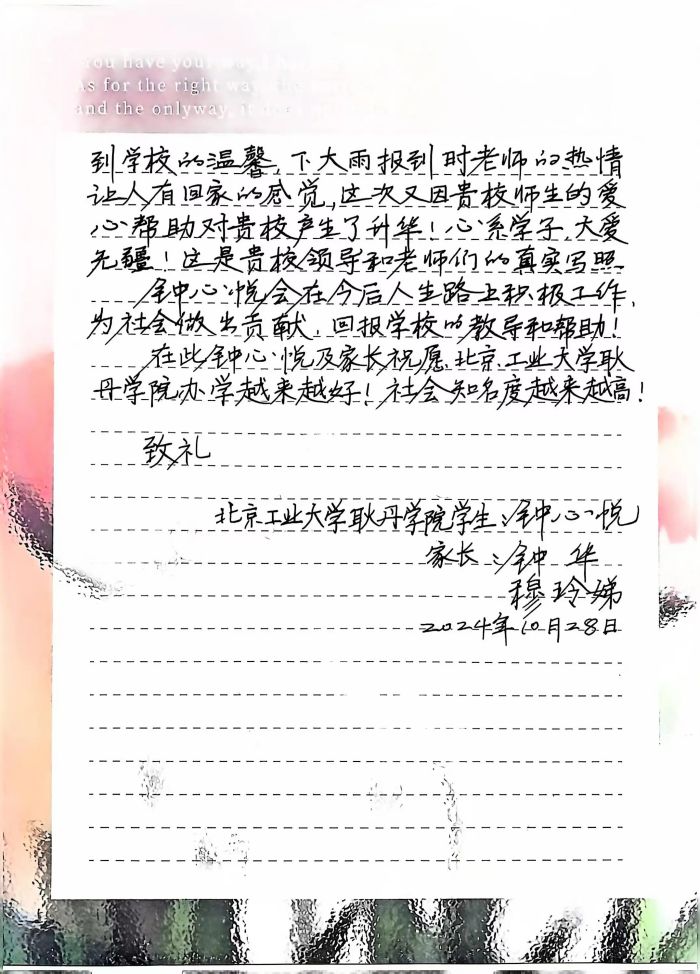 You have your way.
As for the right way, the
and the onlyway, it does
到学校的温馨，下大雨报到时老师的热情
让人有回家的感觉，这次又因贵校师生的爱
心帮助对贵校产生了升华！心系学子，大爱
无疆！这是贵校领导和老师们的真实写照
钟心悦会在今后人生路上积极工作，
为社会做出贡献，回报学校的教导和帮助！
在此钟心悦及家长祝愿北京工业大学耿
丹学院办学越来越好！社会知名度越来越高！
致礼
北京工业大学耿丹学院学生：钟心悦
家长：钟华
穆玲娣
2024年10月28日